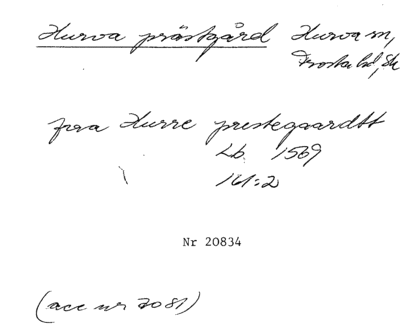 Hurva prästgård Hurva sn,
Frosta hd, Sk
fraa Hurre prestegaardtt
Lb 1569
161:2
Nr 20834
(acc nr 7081)